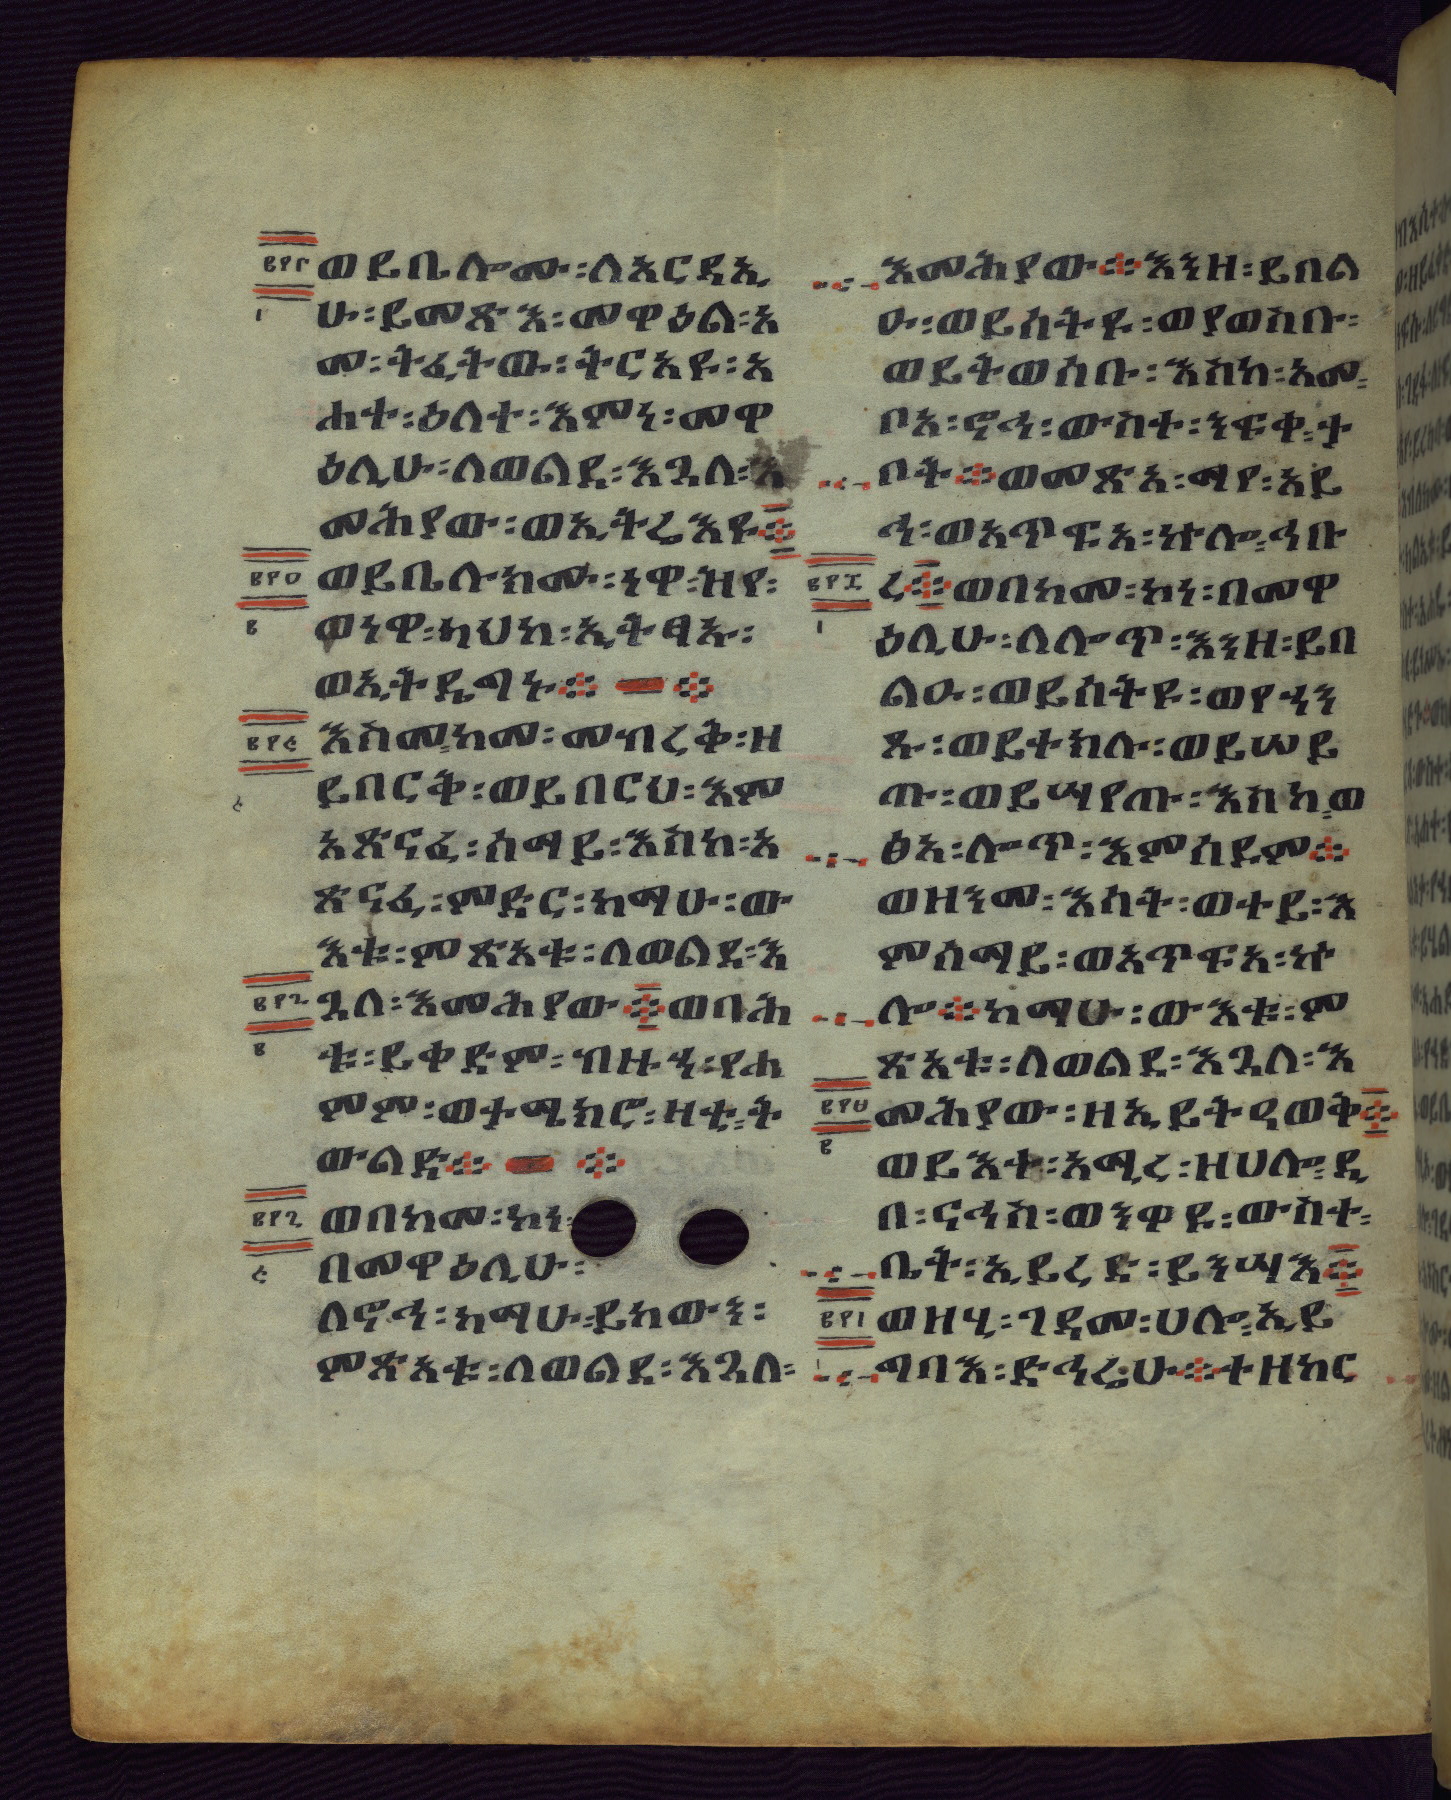 ወይቤሎሙ፡ለአርዳኢ
ሁ፡ይመጽእ፡መዋዕል፡አ
መ፡ትፈትው፡ትርአዩ፡አ
ሐተ፡ዕለተ፡እምነ፡መዋ
ዕሊሁ፡ለወልደ፡እጓለ፡እ
መሕያው፡ወኢትሬእዩ፨
ወይቤሉክሙ፡ነዋ፡ዝየ፡
ወነዋ፡ካህከ፡ኢትፃኡ፡
ወኢትዴግኑ፨
እስመ፡ከመ፡መብረቅ፡ዘ
ይበርቅ፡ወይበርህ፡እም
አጽናፈ፡ሰማይ፡እስከ፡አ
ጽናፈ፡ምድር፡ከማሁ፡ው
እቱ፡ምጽአቱ፡ለወልደ፡እ
ጓለ፡እመሕያው፨ወባሕ
ቱ፡ይቀድም፡ብዙኃ፡የሐ
ምም፡ወተሜክሮ፡ዛቲ፡ት
ውልድ፨
ወበከመ፡ኮነ፡
በመዋዕሊሁ፡
ለኖኅ፡ከማሁ፡ይከውን፡
ምጽአቱ፡ለወልደ፡እጓለ፡
እመሕያው፨እንዘ፡ይበል
ዑ፡ወይሰትዩ፡ወያወስቡ፡
ወይትወሰቡ፡እስከ፡አመ፡
ቦአ፡ኖኅ፡ውስተ፡ንፍቀ፡ታ
ቦት፨ወመጽአ፡ማየ፡አይ
ኅ፡ወአጥፍአ፡ኵሎ፡ኅቡ
ረ፨ወበከመ፡ኮነ፡በመዋ
ዕሊሁ፡ለሎጥ፡እንዘ፡ይበ
ልዑ፡ወይሰትዩ፡ወየኀን
ጹ፡ወይተክሉ፡ወይሠይ
ጡ፡ወይሣየጡ፡እስከ፡ወ
ፅአ፡ሎጥ፡እምሰዶም፨
ወዘንመ፡እሳት፡ወተይ፡እ
ምሰማይ፡ወአጥፍአ፡ኵ
ሎ፨ከማሁ፡ውእቱ፡ም
ጽአቱ፡ለወልደ፡እጓለ፡እ
መሕያው፡ዘኢይትዓወቅ፨
ወይእተ፡አሚረ፡ዘሀሎ፡ዲ
በ፡ናኅስ፡ወንዋዩ፡ውስተ፡
ቤት፡ኢይረድ፡ይንሣእ፨
ወዘሂ፡ገዳመ፡ሀሎ፡ኢይ
ግባእ፡ድኅሬሁ፨ተዘከር